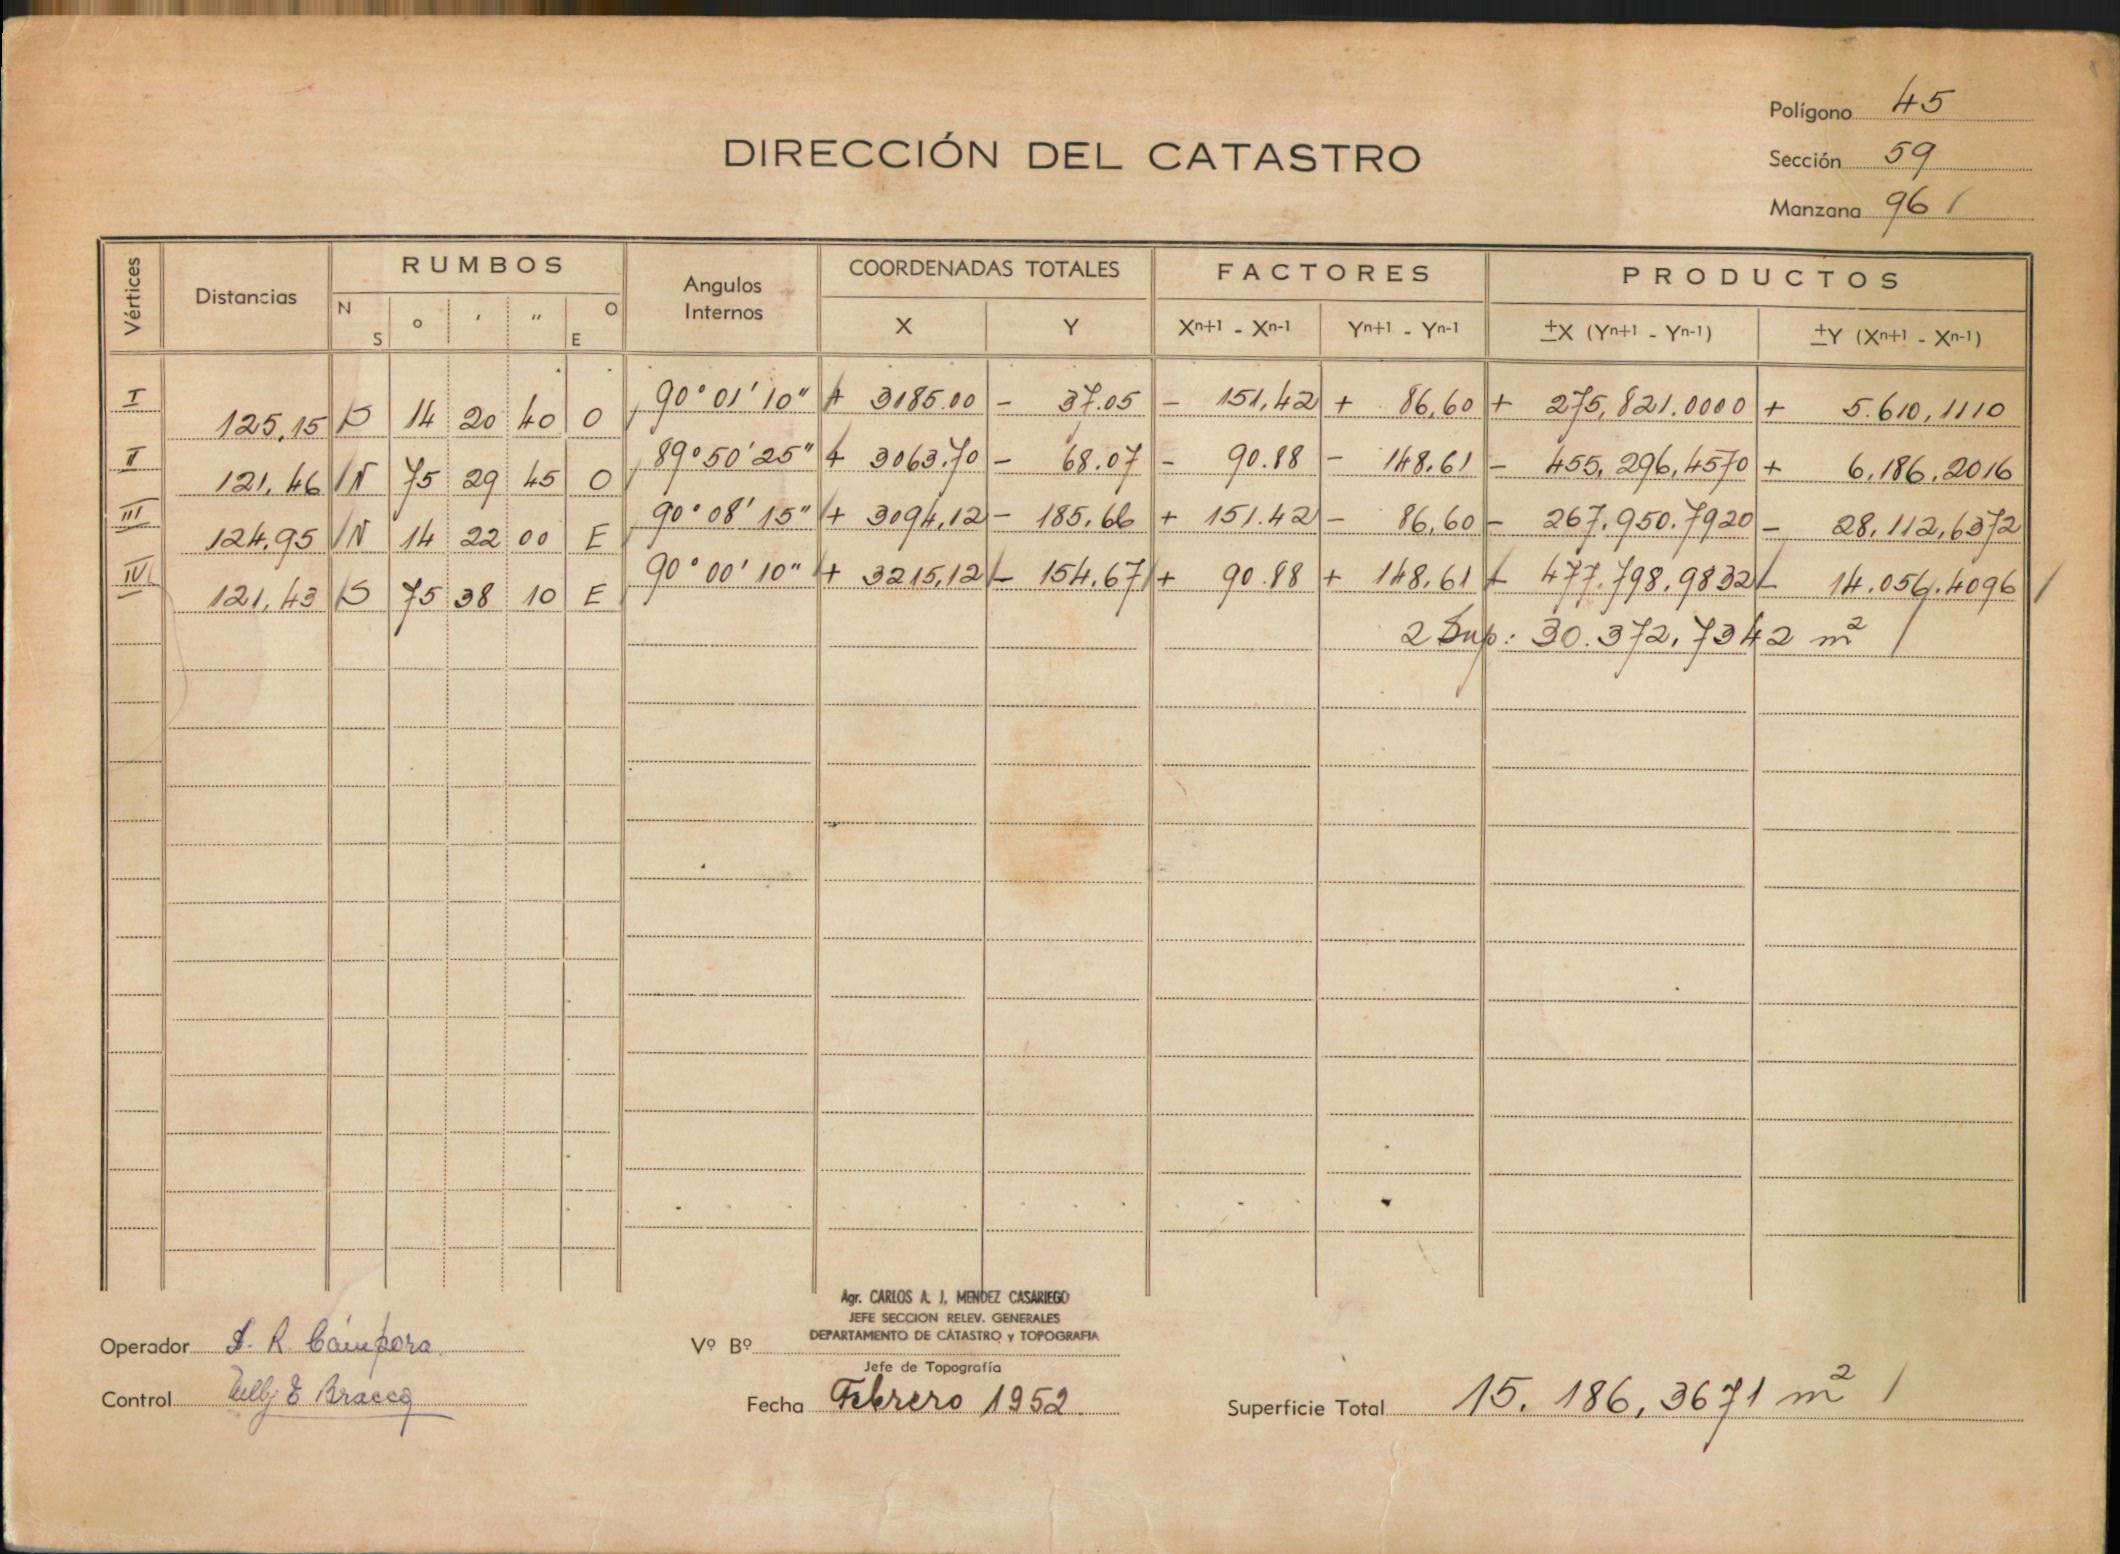 Polígono 45
DIRECCIÓN DEL CATASTRO
Sección 59
Manzana 96 /
Vértices Distancias RUMBOS Angulos Internos COORDENADAS TOTALES FACTORES PRODUCTOS
N S o ' " O E X Y Xn+1 - Xn-1 Yn+1 - Yn-1 ±X (Yn+1 - Yn-1) ±Y (Xn+1 - Xn-1)
I 125,15 S 14 20 40 O 90° 01' 10" + 3185.00 - 37.05 - 151,42 + 86,60 + 275,821.0000 + 5.610,1110
II 121,46 N 75 29 45 O 89° 50' 25" + 3063.70 - 68.07 - 90.88 - 148.61 - 455,296,4570 + 6,186,2016
III 124,95 N 14 22 00 E 90° 08' 15" + 3094,12 - 185,66 + 151.42 - 86,60 - 267.950.7920 - 28,112,6372
IV 121,43 S 75 38 10 E 90° 00' 10" + 3215,12 - 154.67 + 90.88 + 148,61 + 477.798,9832 - 14.056.4096 /
2 Sup: 30.372,7342 m² /
Agr. CARLOS A. J. MENDEZ CASARIEGO
JEFE SECCION RELEV. GENERALES
DEPARTAMENTO DE CATASTRO y TOPOGRAFIA
Operador R. Cámpora Vº Bº
Jefe de Topografía
Control Nelly E Bracco Fecha Febrero 1952. Superficie Total 15.186,3671 m² /